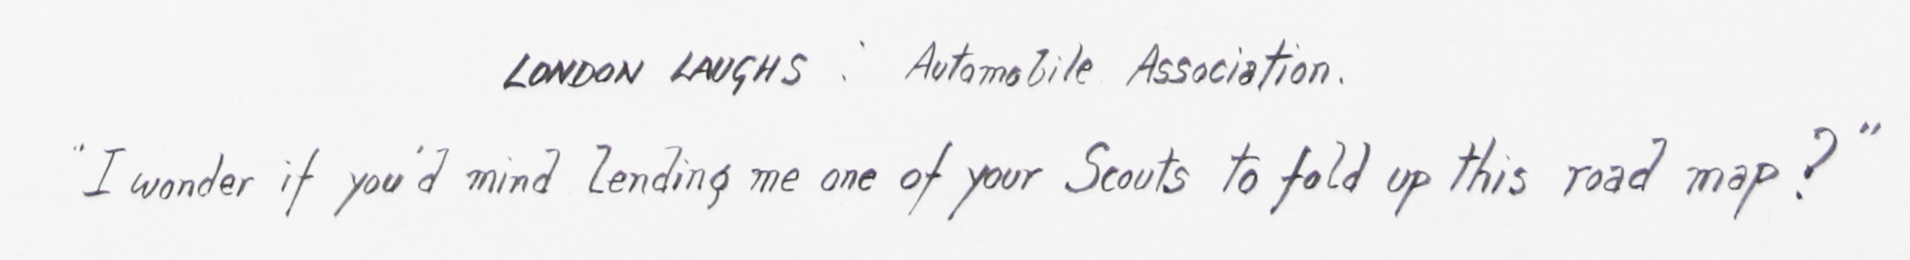 LONDON LAUGHS : Automobile Association.
"I wonder if you'd mind lending me one of your Scouts to fold up this road map?"